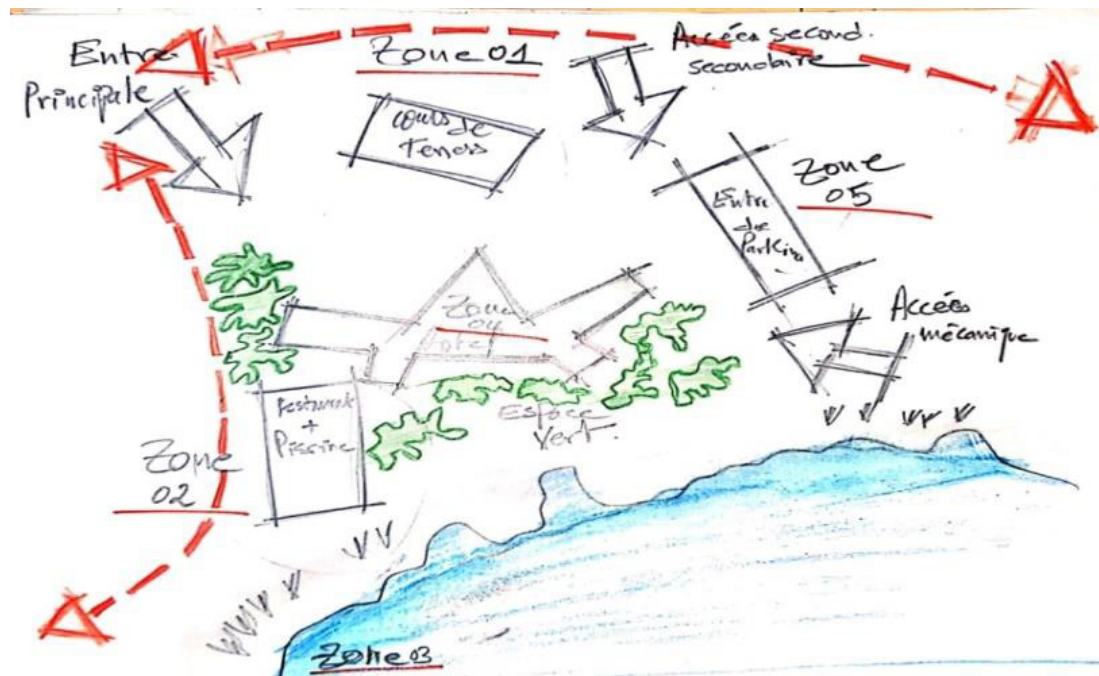 Entre
Principale
Zone 01
Accées second.
secondaire
Cours de
Teners
Zone
05
Entre
de
Parking
Accées
mécanique
Zone
04
Hotel
Espace
Vert.
Restaurant
+
Piscine
Zone
02
Zone 03